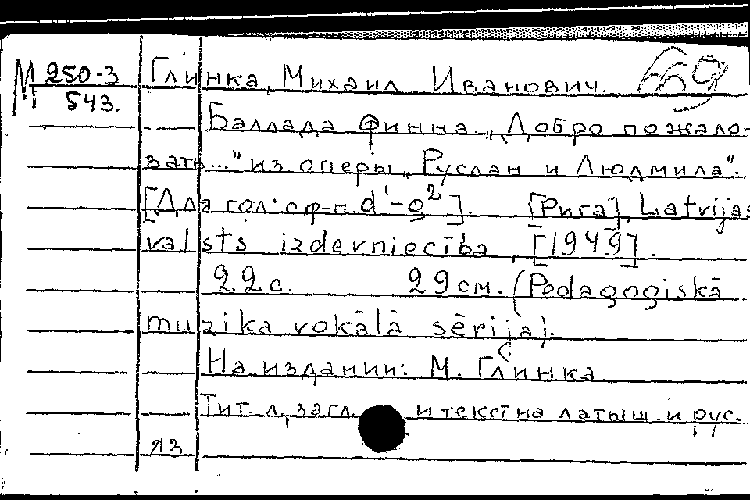 М 250-3 Глинка, Михаил Иванович. 69
543.
Баллада Финна „Добро пожало-
вать..." из оперы „Руслан и Людмила".
[Для гол. с ф-п. d¹-g²]. [Рига], Latvijas
valsts izdevniecība, [1949].
22с. 29см. (Pedagoģiskā
muzika vokālā sērija).
На издании: М. Глинка
Тит. л., загл. и текст на латыш. и рус.
яз